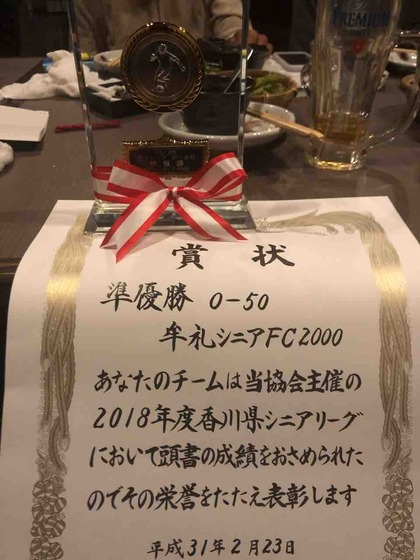 PREMIUM
賞状
準優勝 O-50
牟礼シニアFC2000
あなたのチームは当協会主催の
2018年度香川県シニアリーグ
において頭書の成績をおさめられた
のでその栄誉をたたえ表彰します
平成31年2月23日